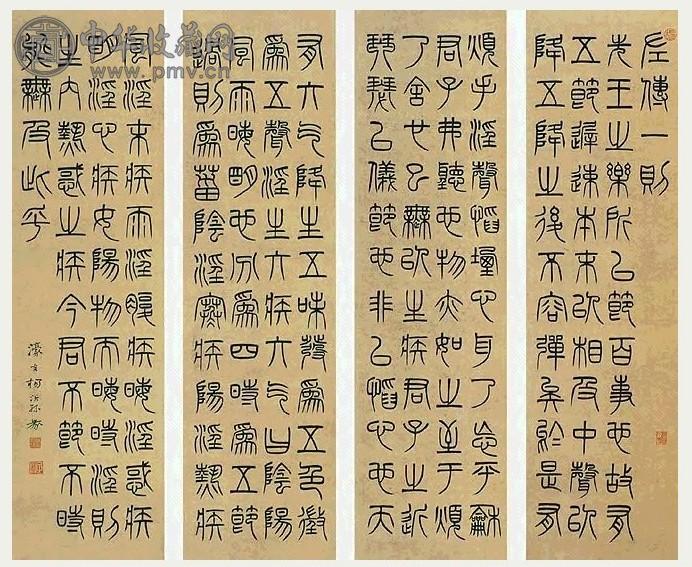 左傳一則
先王之樂所以節百事也故有
五節遲速本末以相及中聲以
降五降之後不容彈矣於是有
煩手淫聲慆堙心耳乃忘平龢
君子弗聽也物亦如之至于煩
乃舍也已無以生疾君子之近
琴瑟以儀節也非以慆心也天
有六气降生五味發爲五色徵
爲五聲淫生六疾六气曰陰陽
風雨晦明也分爲四時爲五節
過則爲菑陰淫寒疾陽淫熱疾
風淫末疾雨淫腹疾晦淫惑疾
明淫心疾女陽物而晦時淫則
生内熱惑之疾今君不節不時
能無及此乎
濠叟楊沂孫篆
中华收藏网
www.pmv.cn